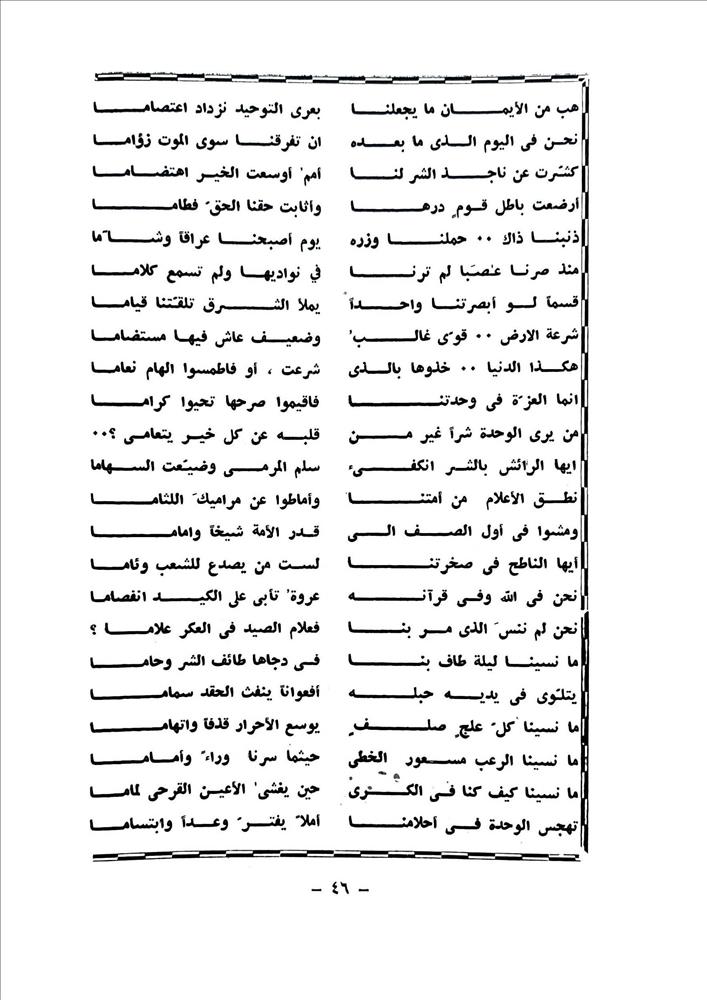 هب من الأيمان ما يجعلنا بعرى التوحيد نزداد اعتصاما
نحن فى اليوم الذى ما بعده ان تفرقنا سوى الموت زؤاما
كشّرت عن ناجذ الشر لنا أمم' أوسعت الخير اهتضاما
أرضعت باطل قومٍ درها وأثابت حقنا الحقّ فطاما
ذنبنا ذاك ٠٠ حملنا وزره يوم أصبحنا عراقاً وشآما
منذ صرنا عصَبا لم ترنا في نواديها ولم تسمع كلاما
قسماً لو أبصرتنا واحداً يملأ الشرق تلقّتنا قياما
شرعة الارض ٠٠ قوىّ غالب' وضعيف عاش فيها مستضاما
هكذا الدنيا ٠٠ خذوها بالذى شرعت ، أو فاطمسوا الهام نعاما
انما العزّة فى وحدتنا فاقيموا صرحها تحيوا كراما
من يرى الوحدة شراً غير من قلبه عن كل خير يتعامى ؟٠٠
ايها الرائش بالشر انكفىء سلم المرمى وضيّعت السهاما
نطق الأعلام من أمتنا وأماطوا عن مراميكَ اللثاما
ومشوا فى أول الصف الى قدر الأمة شيخاً واماما
أيها الناطح فى صخرتنا لست من يصدع للشعب وئاما
نحن فى الله وفى قرآنه عروة' تأبى على الكيد انفصاما
نحن لم ننسَ الذى مر بنا فعلام الصيد فى العكر علاما ؟
ما نسينا ليلة طاف بنا فى دجاها طائف الشر وحاما
يتلوّى فى يديه حبله أفعواناً ينفث الحقد سماما
ما نسينا كلّ علجٍ صلفٍ يوسع الأحرار قذفاً واتهاما
ما نسينا الرعب مسعور الخطى حيثما سرنا وراءً وأماما
ما نسينا كيف كنا فى الكرى حين يغشى' الأعين القرحى لماما
تهجس الوحدة فى أحلامنا أملاً يفترّ وعداً وابتساما
– ٤٦ –